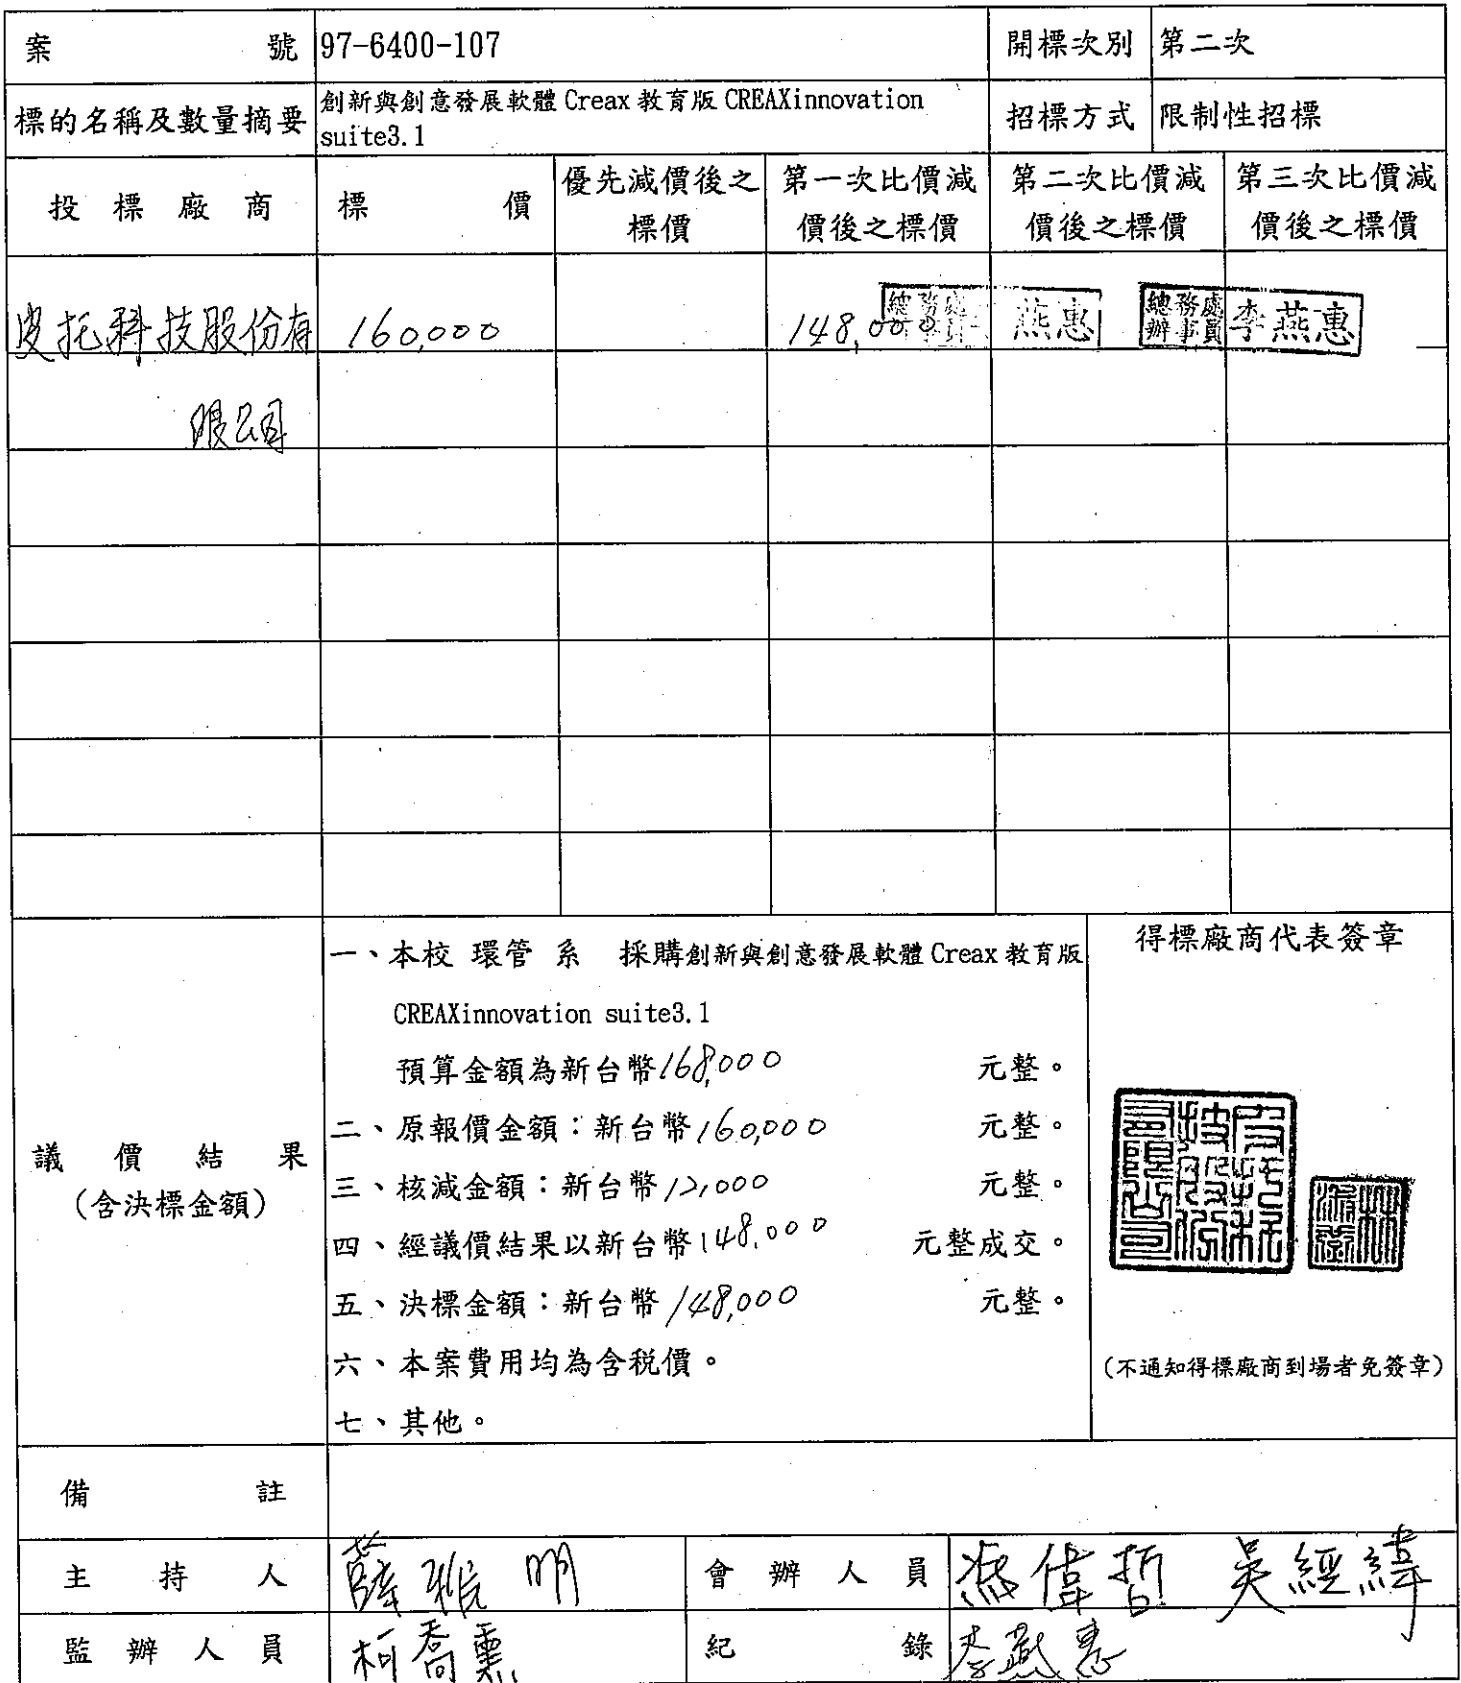 案 號 97-6400-107 開標次別 第二次
標的名稱及數量摘要 創新與創意發展軟體 Creax 教育版 CREAXinnovation
suite3.1
招標方式 限制性招標
投標廠商 標 價 優先減價後之標價 第一次比價減價後之標價 第二次比價減價後之標價 第三次比價減價後之標價
皮托科技股份有 160,000 148,000 燕惠 總務處辦事員 李燕惠
限公司
議價結果
(含決標金額)
一、本校 環管 系 採購創新與創意發展軟體 Creax 教育版
CREAXinnovation suite3.1
預算金額為新台幣168,000 元整。
二、原報價金額：新台幣160,000 元整。
三、核減金額：新台幣12,000 元整。
四、經議價結果以新台幣148,000 元整成交。
五、決標金額：新台幣148,000 元整。
六、本案費用均為含稅價。
七、其他。
得標廠商代表簽章
皮托科技股份有限公司
(不通知得標廠商到場者免簽章)
備 註
主 持 人 薛雅明 會 辦 人 員 偉哲 吳經緯
監 辦 人 員 柯喬 紀 錄 李燕惠